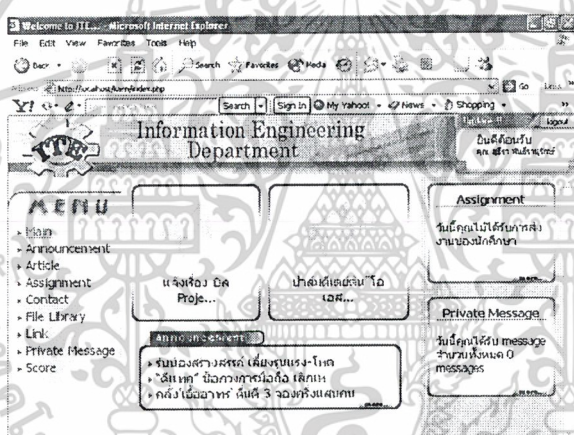 Welcome to ITE... - Microsoft Internet Explorer
File Edit View Favorites Tools Help
Back Search Favorites Media
http://localhost/learn/index.php Go Links
Y! Search Sign In My Yahoo! News Shopping
logout
Information Engineering
Department
ITE
ยินดีต้อนรับ
คุณ
MENU
Main
Announcement
Article
Assignment
Contact
File Library
Link
Private Message
Score
แจ้งเรื่อง ปิด
Proje...
ปาล์มดีเดย์ดัน "โอ
เอส...
Announcement
รับน้องสร้างสรรค์ เลี่ยงรุนแรง-โหด
"ดีแทค" ข้อกวงการมือถือ เลิกเห
คลัง'เอื้ออาทร' คันดี 3 จองครั้งแสนคน
more...
Assignment
วันนี้คุณไม่ได้รับการส่ง
งานของนักศึกษา
more...
Private Message
วันนี้คุณได้รับ message
จำนวนทั้งหมด 0
messages
more...